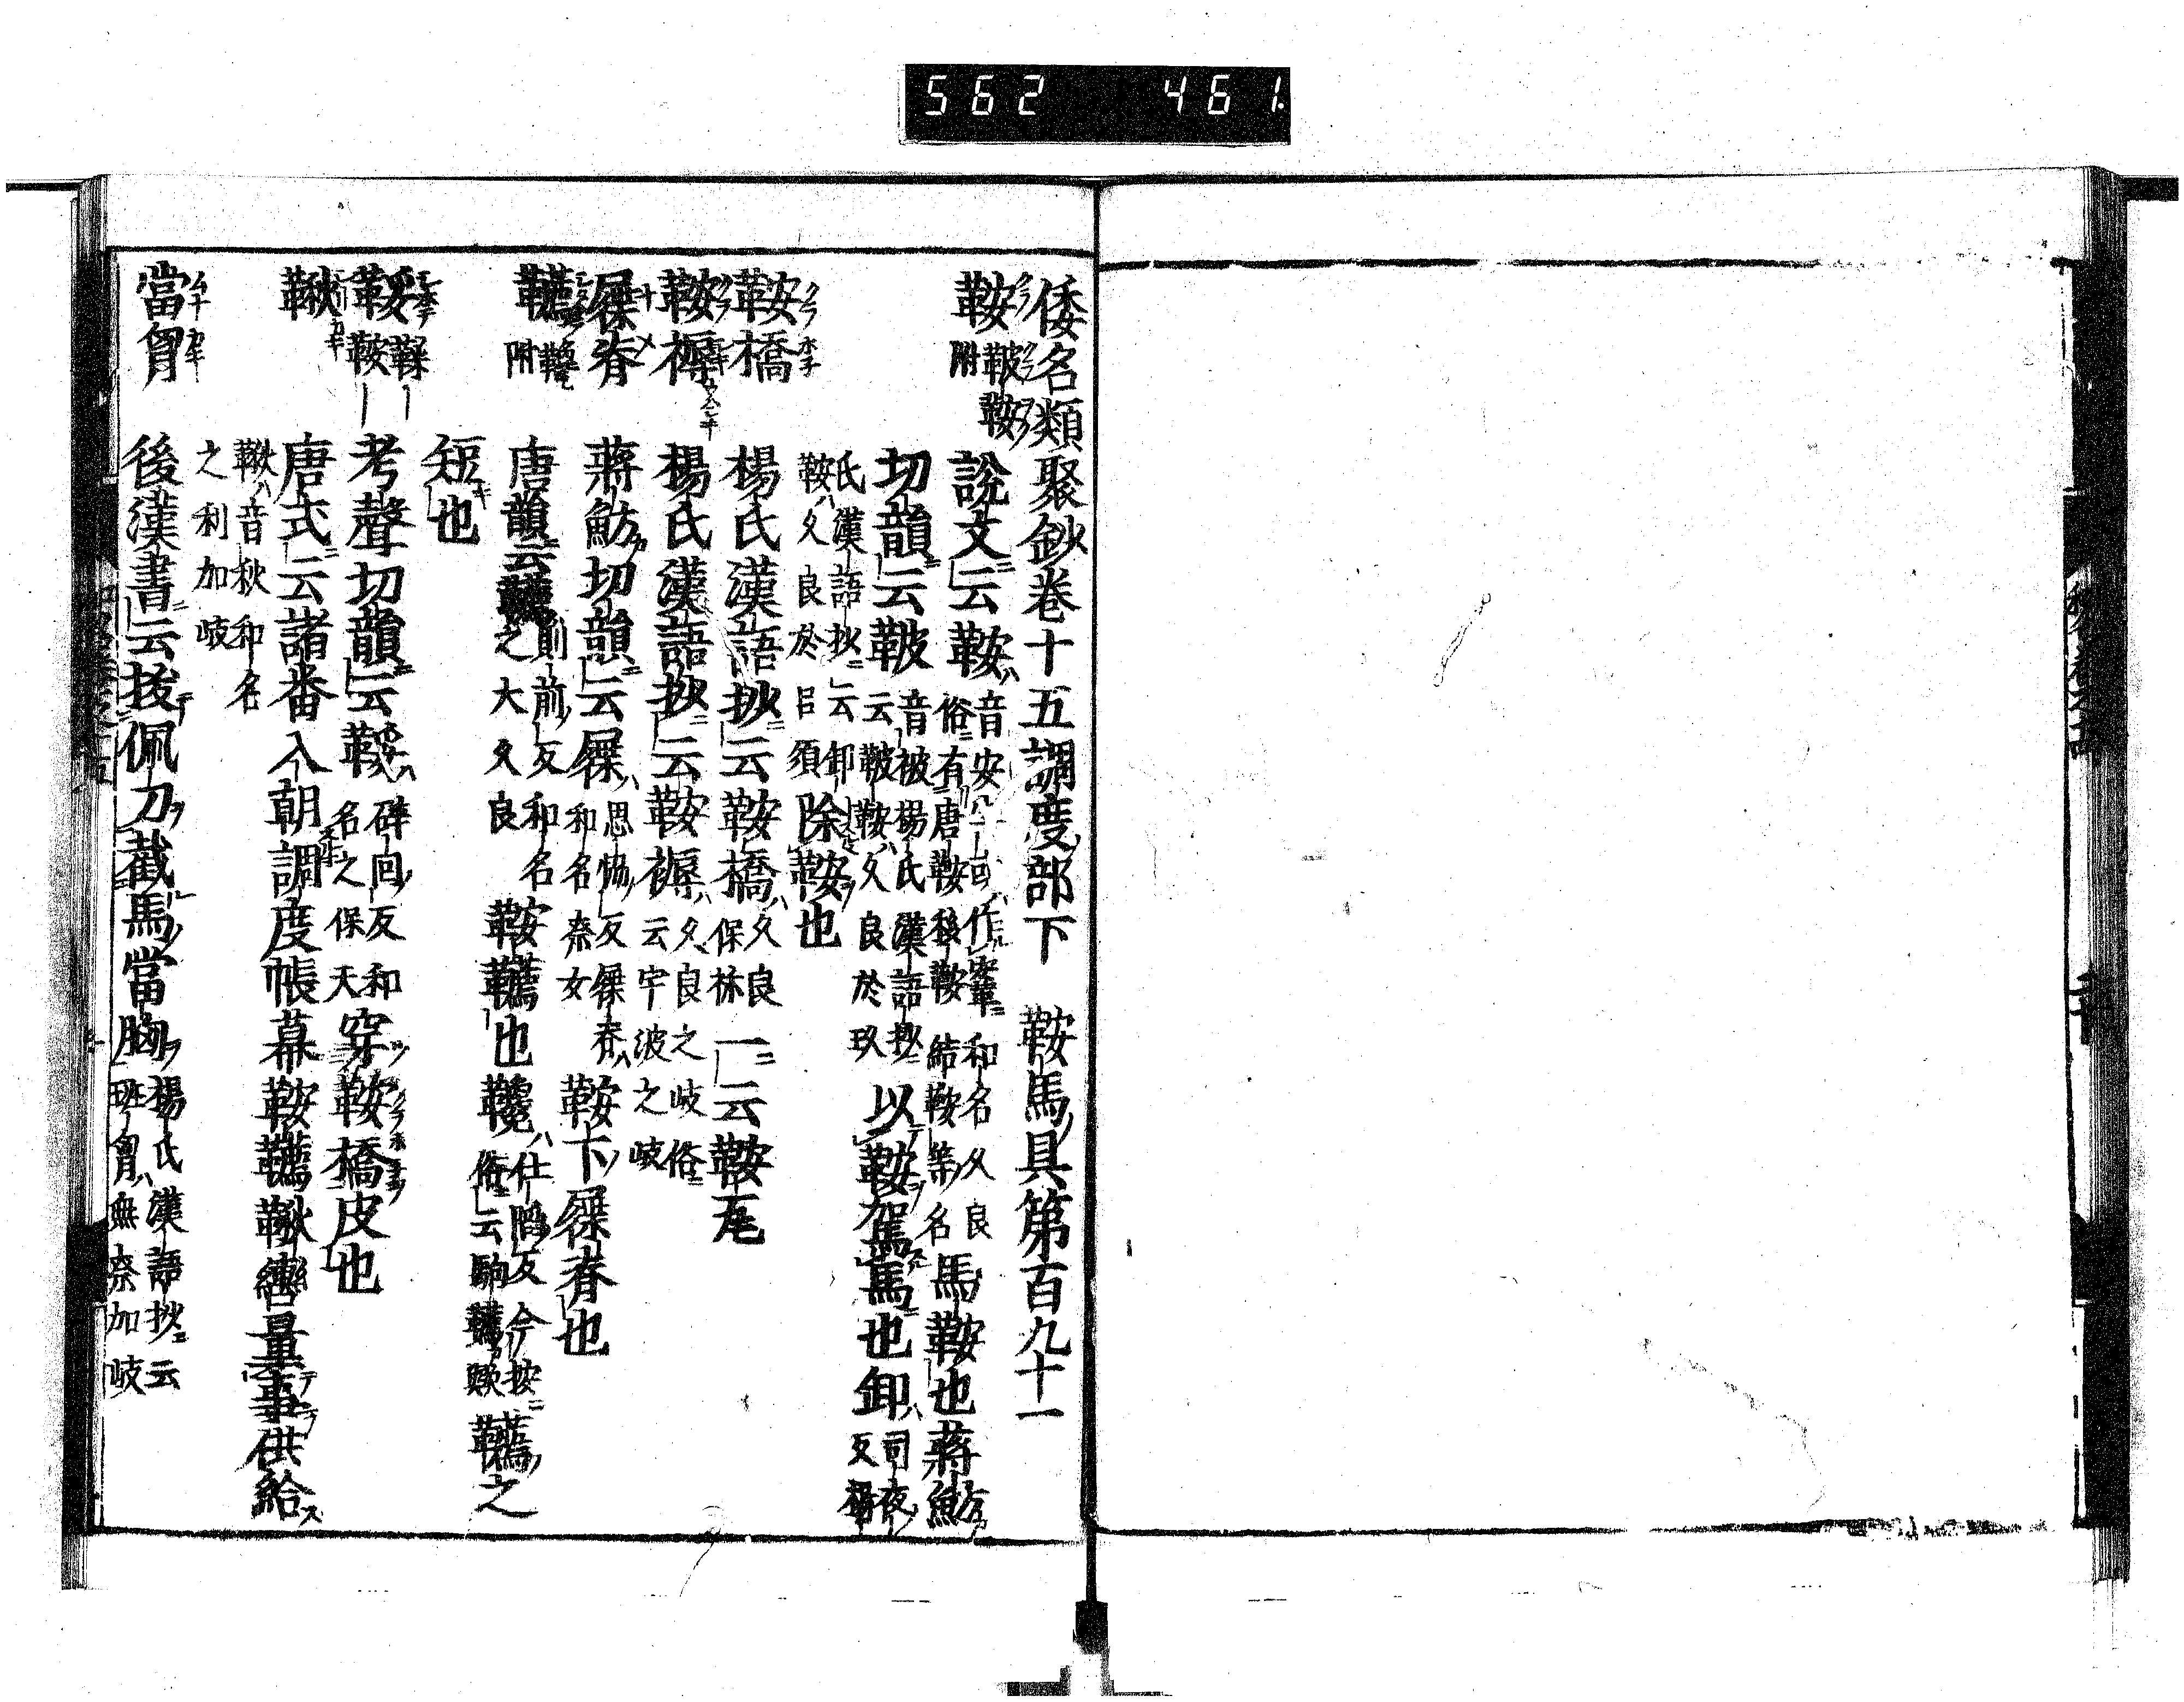 562 461.
倭名類聚鈔巻十五調度部下 鞍馬具第百九十一
鞍 鞁鞍附 說文云鞍 音安 作 和名久良 俗有唐鞍移鞍結鞍等名 馬鞍也蔣魴
切韻云鞁 音被楊氏漢語抄云鞁鞍久良於玖 以鞍駕馬也卸 司夜反楊
氏漢語抄云卸鞍久良於呂須 除鞍也
鞍橋 楊氏漢語抄云鞍橋 久良保祢 一云鞍瓦
鞍褥 楊氏漢語抄云鞍褥 久良之岐俗云宇波之岐
屧脊 蔣魴切韻云屧 思協反屧脊和名奈女 鞍下屧脊也
韉 附 唐韻云韉 則前反和名之太久良 鞍韉也 仕 反今按俗云駒韉 韉之
短也
鞍 考聲切韻云 碎回反和名之保天 穿鞍橋皮也
鞦 唐式云諸番入朝調度帳幕鞍韉鞦轡量事供給
鞦音秋和名之利加岐
當胷 後漢書云拔佩刀截馬當胸 楊氏漢語抄云 胷無奈加岐